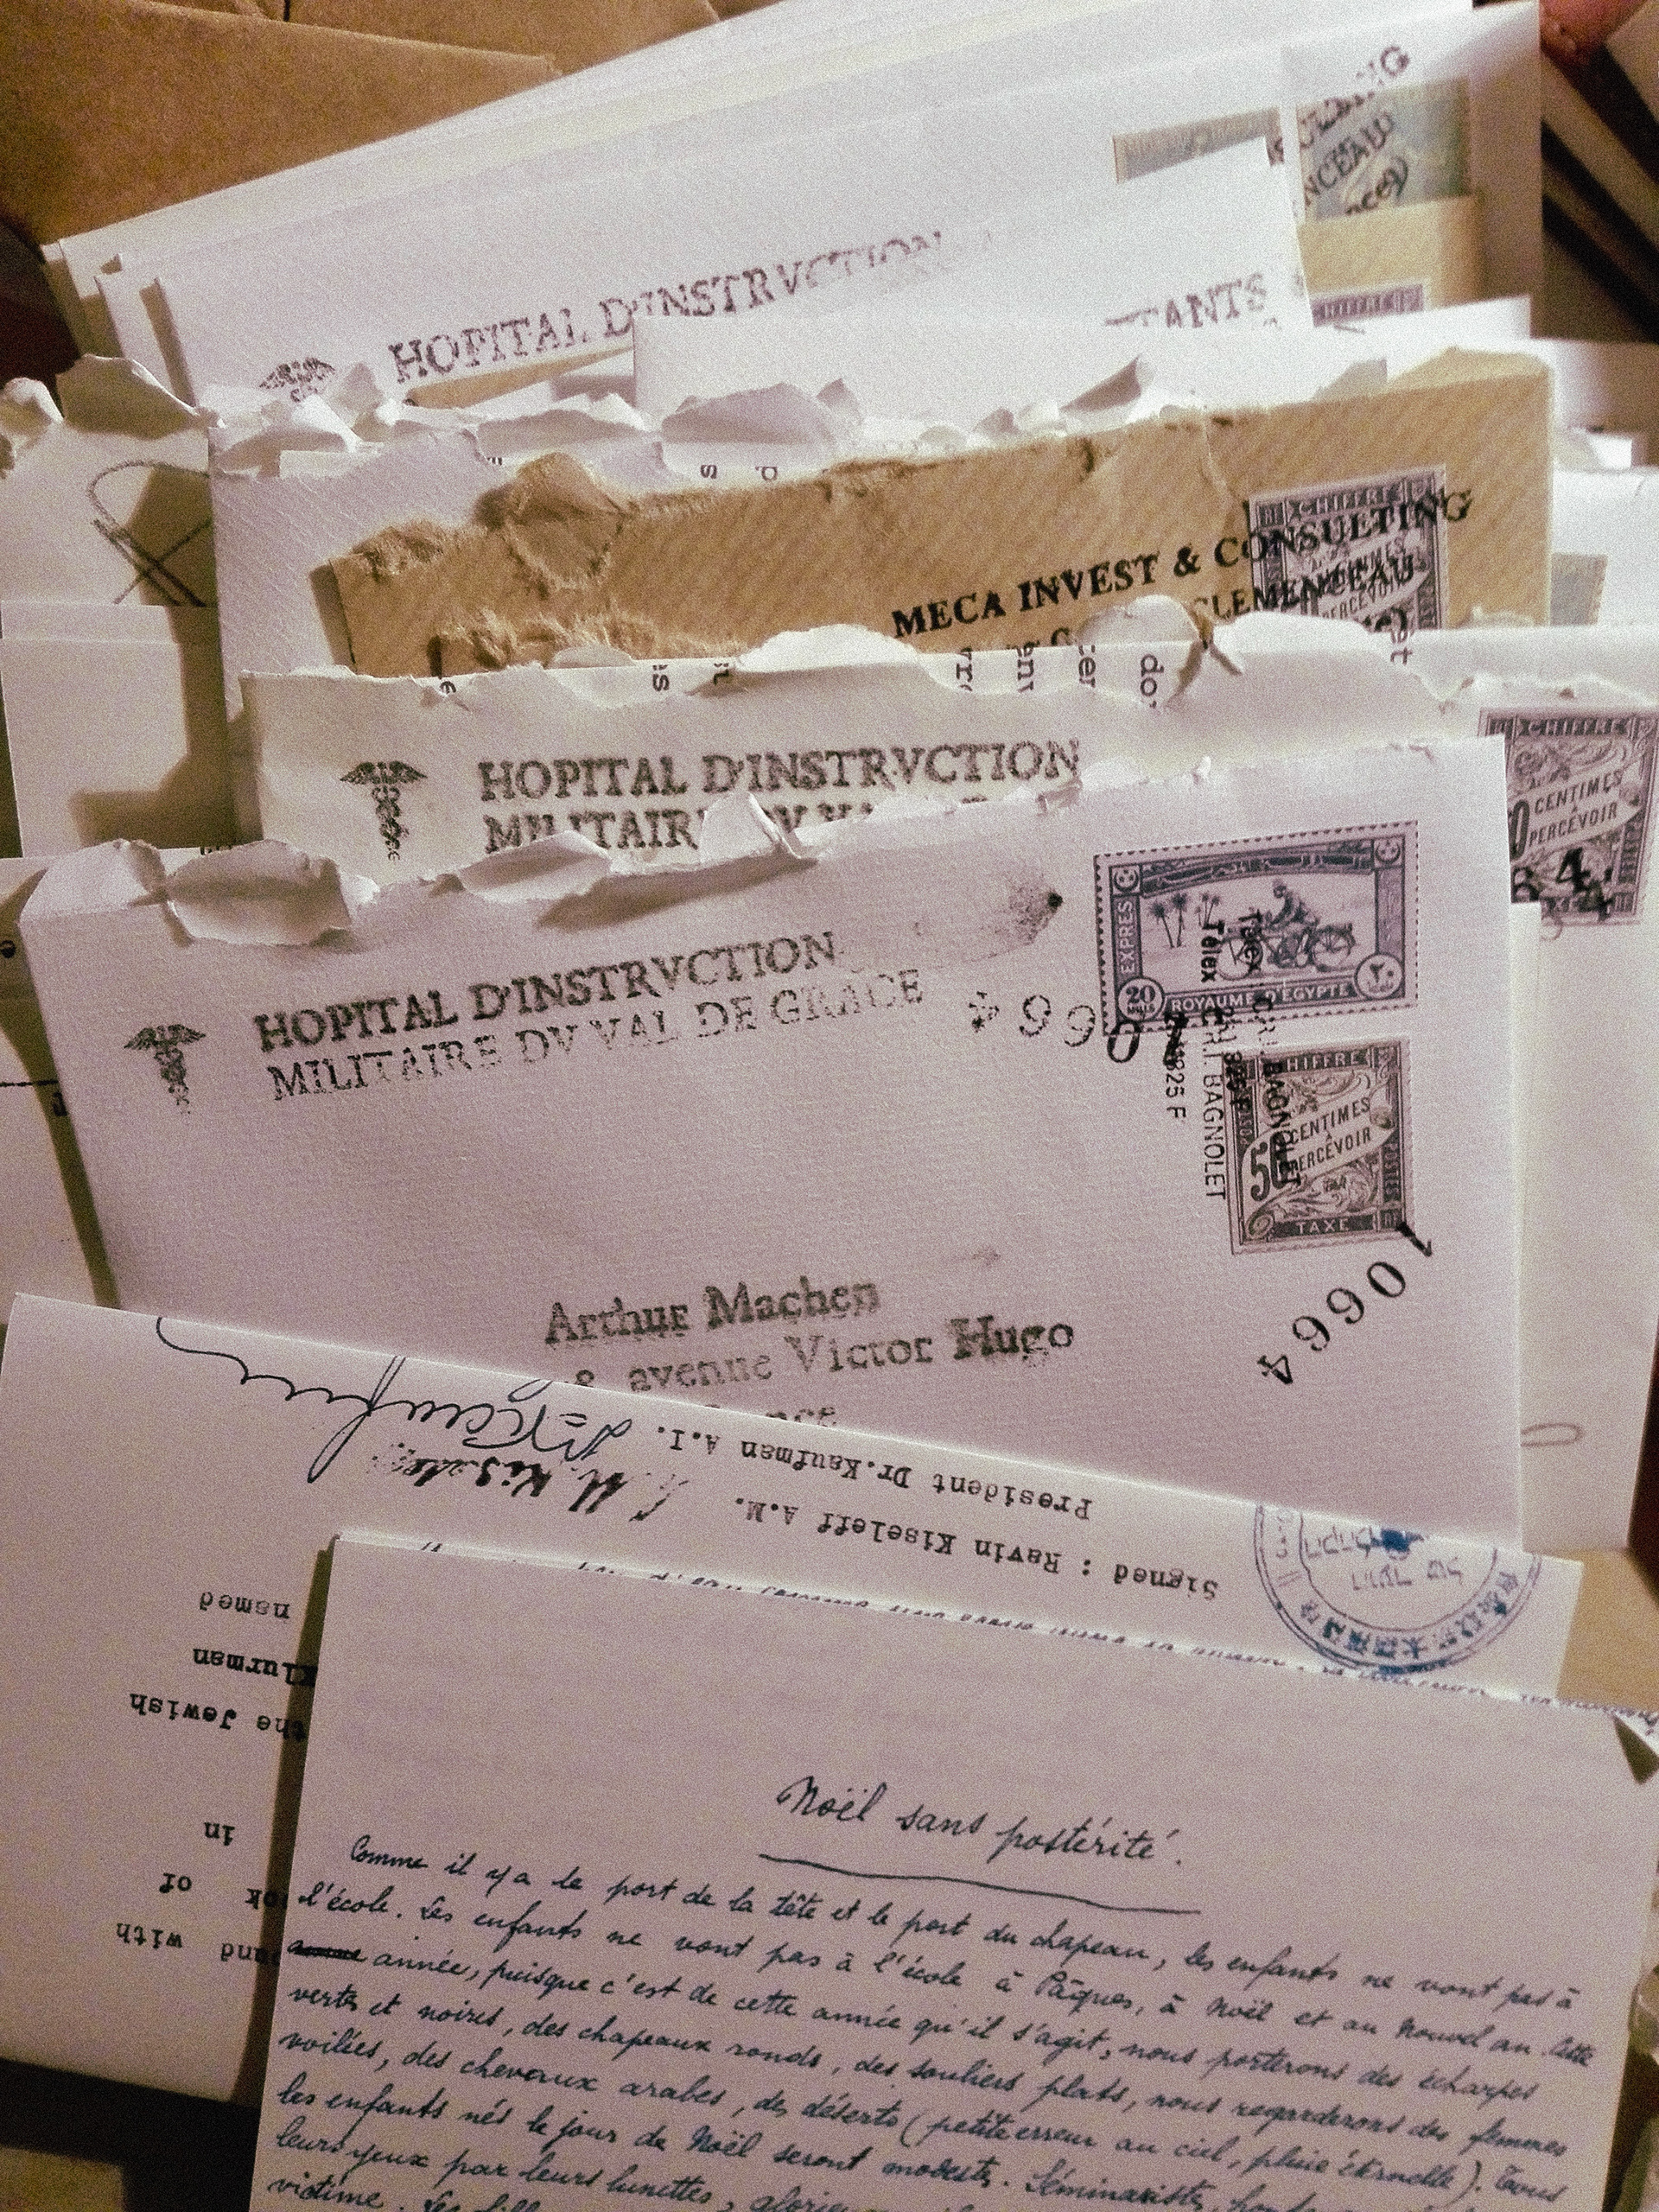 HOPITAL D'INSTRVCTION
TANTS
CHIFFRE
MECA INVEST & CONSULTING
CLEMENCEAU
CENTIMES
PERCEVOIR
HOPITAL D'INSTRVCTION
MILITAIRE DV
CHIFFRE
CENTIMES
À
PERCEVOIR
HOPITAL D'INSTRVCTION
MILITAIRE DV VAL DE GRACE
EXPRES
20
ROYAUME D'EGYPTE
٢٠
Telex
BAGNOLET
10664
CHIFFRE
50
CENTIMES
À
PERCEVOIR
TAXE
10664
Arthur Machen
8, avenue Victor Hugo
President Dr.Kaufman A.I.
Signed : Ravin Kiseleff A.M.
named
Klurman
the Jewish
in
of
and with
Noël sans postérité.
Comme il y a le port de la tête et le port du chapeau, les enfants ne vont pas à
l'école. Les enfants ne vont pas à l'école à Pâques, à Noël et au Nouvel an. Cette
année, puisque c'est de cette année qu'il s'agit, nous porterons des écharpes
vertes et noires, des chapeaux ronds, des souliers plats, nous regarderons des femmes
voilées, des chevaux arabes, des déserts (petite erreur au ciel, pluie éternelle). Tous
les enfants nés le jour de Noël seront modestes. Séminaristes,
leurs yeux par leurs lunettes,
victime. Les